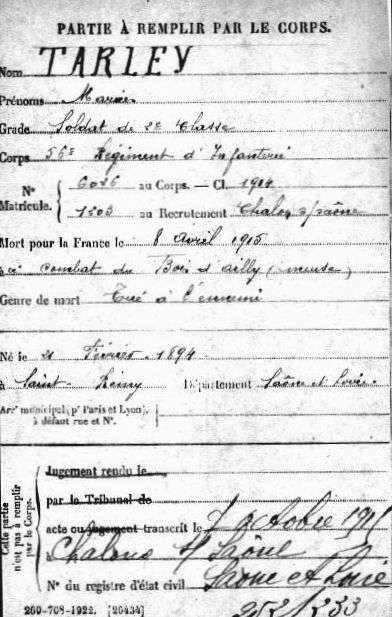 PARTIE À REMPLIR PAR LE CORPS.
Nom TARLEY
Prénoms Marie
Grade Soldat de 2e Classe
Corps 56e Régiment d'Infanterie
N° Matricule. 6026 au Corps. — Cl. 1914
1203 au Recrutement Chalon s/saône
Mort pour la France le 8 avril 1915
à combat du Bois d'ailly (meuse)
Genre de mort Tué à l'ennemi
Né le 21 Février 1894
à Saint-Rémy Département Saône et Loire
Arrt municipal (pr Paris et Lyon),
à défaut rue et N°.
Cette partie
n'est pas à remplir
par le Corps.
Jugement rendu le
par le Tribunal de
acte ou jugement transcrit le 7 octobre
Chalons s/ Saône
N° du registre d'état civil Saone et Loire
252/233
260-708-1922. [26434]